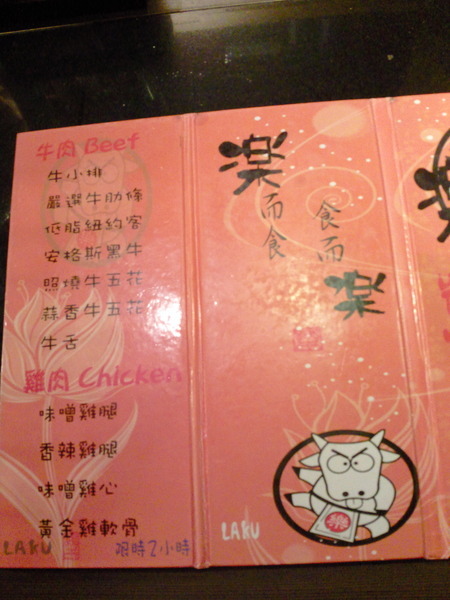 牛肉 Beef
牛小排
嚴選牛肋條
低脂紐約客
安格斯黑牛
照燒牛五花
蒜香牛五花
牛舌
雞肉 Chicken
味噌雞腿
香辣雞腿
味噌雞心
黃金雞軟骨
LAKU
限時2小時
楽而食
食而楽
LAKU